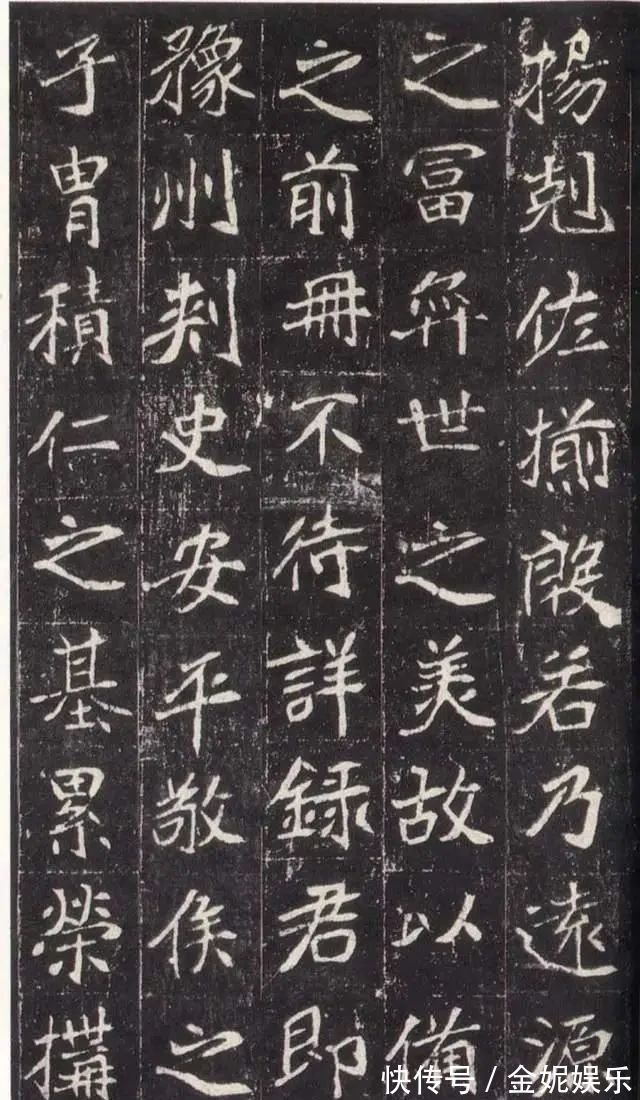 揚剋佐揃殷若乃遠源
之冨弈世之美故以備
之前冊不待詳録君即
豫州刾史安平敬侯之
子胄積仁之基累榮搆
快传号 / 金妮娱乐